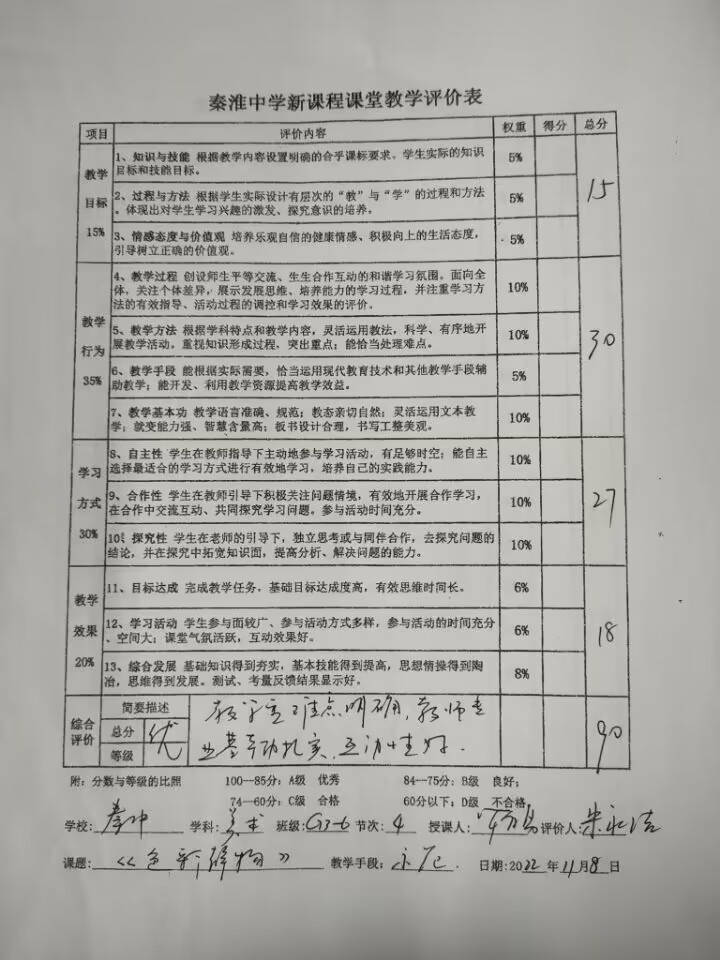 秦淮中学新课程课堂教学评价表
项目 评价内容 权重 得分 总分
教学目标 15%
1、知识与技能 根据教学内容设置明确的合乎课标要求、学生实际的知识
目标和技能目标。 5%
2、过程与方法 根据学生实际设计有层次的“教”与“学”的过程和方法
、体现出对学生学习兴趣的激发、探究意识的培养。 5%
3、情感态度与价值观 培养乐观自信的健康情感、积极向上的生活态度,
引导树立正确的价值观。 5%
15
教学行为 35%
4、教学过程 创设师生平等交流、生生合作互动的和谐学习氛围。面向全
体,关注个体差异,展示发展思维、培养能力的学习过程,并注重学习方
法的有效指导、活动过程的调控和学习效果的评价。 10%
5、教学方法 根据学科特点和教学内容,灵活运用教法,科学、有序地开
展教学活动,重视知识形成过程,突出重点;能恰当处理难点。 10%
6、教学手段 能根据实际需要,恰当运用现代教育技术和其他教学手段辅
助教学;能开发、利用教学资源提高教学效益。 5%
7、教学基本功 教学语言准确、规范;教态亲切自然;灵活运用文本教
学;就变能力强、智慧含量高;板书设计合理,书写工整美观。 10%
30
学习方式 30%
8、自主性 学生在教师指导下主动地参与学习活动,有足够时空;能自主
选择最适合的学习方式进行有效地学习,培养自己的实践能力。 10%
9、合作性 学生在教师引导下积极关注问题情境,有效地开展合作学习,
在合作中交流互动、共同探究学习问题。参与活动时间充分。 10%
10、探究性 学生在老师的引导下,独立思考或与同伴合作,去探究问题的
结论,并在探究中拓宽知识面,提高分析、解决问题的能力。 10%
27
教学效果 20%
11、目标达成 完成教学任务,基础目标达成度高,有效思维时间长。 6%
12、学习活动 学生参与面较广、参与活动方式多样,参与活动的时间充分
、空间大;课堂气氛活跃,互动效果好。 6%
13、综合发展 基础知识得到夯实,基本技能得到提高,思想情操得到陶
冶,思维得到发展。测试、考量反馈结果显示好。 8%
18
综合评价
简要描述
总分
等级
优
教学重难点明确,教师专
业基本功扎实,互动性好.
90
附:分数与等级的比照 100--85分:A级 优秀 84--75分:B级 良好;
74--60分:C级 合格 60分以下:D级 不合格
学校:秦中 学科:美术 班级:G3-6 节次:4 授课人: 评价人:朱永洁
课题: 教学手段: 日期:2022年11月8日